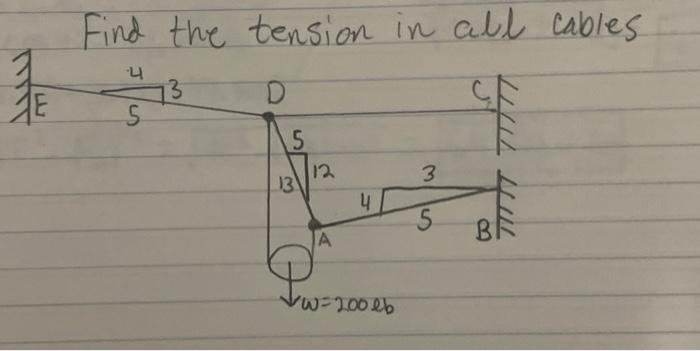 Find the tension in all cables
4
3
D
C
E
5
5
12
3
13
4
5
B
A
W=200lb